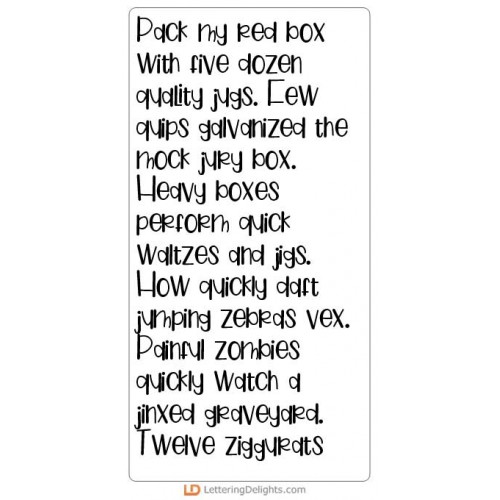 Pack my red box
with five dozen
quality jugs. Few
quips galvanized the
mock jury box.
Heavy boxes
perform quick
waltzes and jigs.
How quickly daft
jumping zebras vex.
Painful zombies
quickly watch a
jinxed graveyard.
Twelve ziggurats
LD LetteringDelights.com